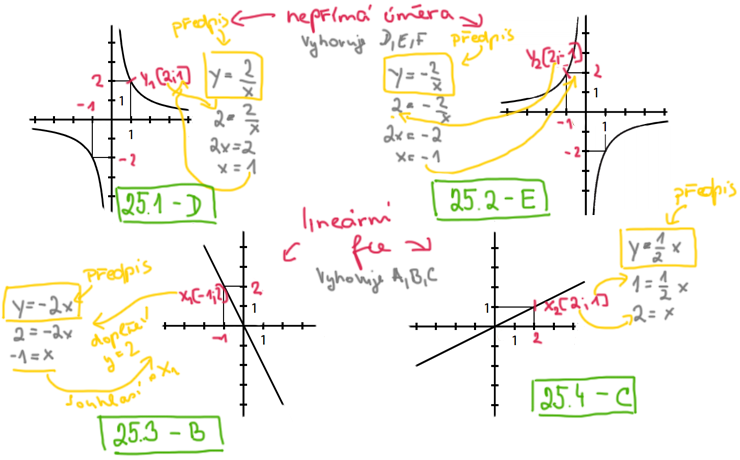 nepřímá úměra
předpis
Vyhovuje D, E, F
předpis
2
y₁[2;1]
-1
1
1
-2
y = 2/x
2 = 2/x
2x = 2
x = 1
25.1 - D
y = -2/x
2 = -2/x
2x = -2
x = -1
y₂[2;-1]
2
-1
1
1
-2
25.2 - E
lineární
fce
Vyhovuje A, B, C
předpis
y = -2x
2 = -2x
-1 = x
doplčit
y = 2
souhlasí s x₁
x₁[-1;2]
2
-1
1
1
25.3 - B
předpis
y = 1/2 x
1 = 1/2 x
2 = x
x₂[2;1]
1
1
2
25.4 - C